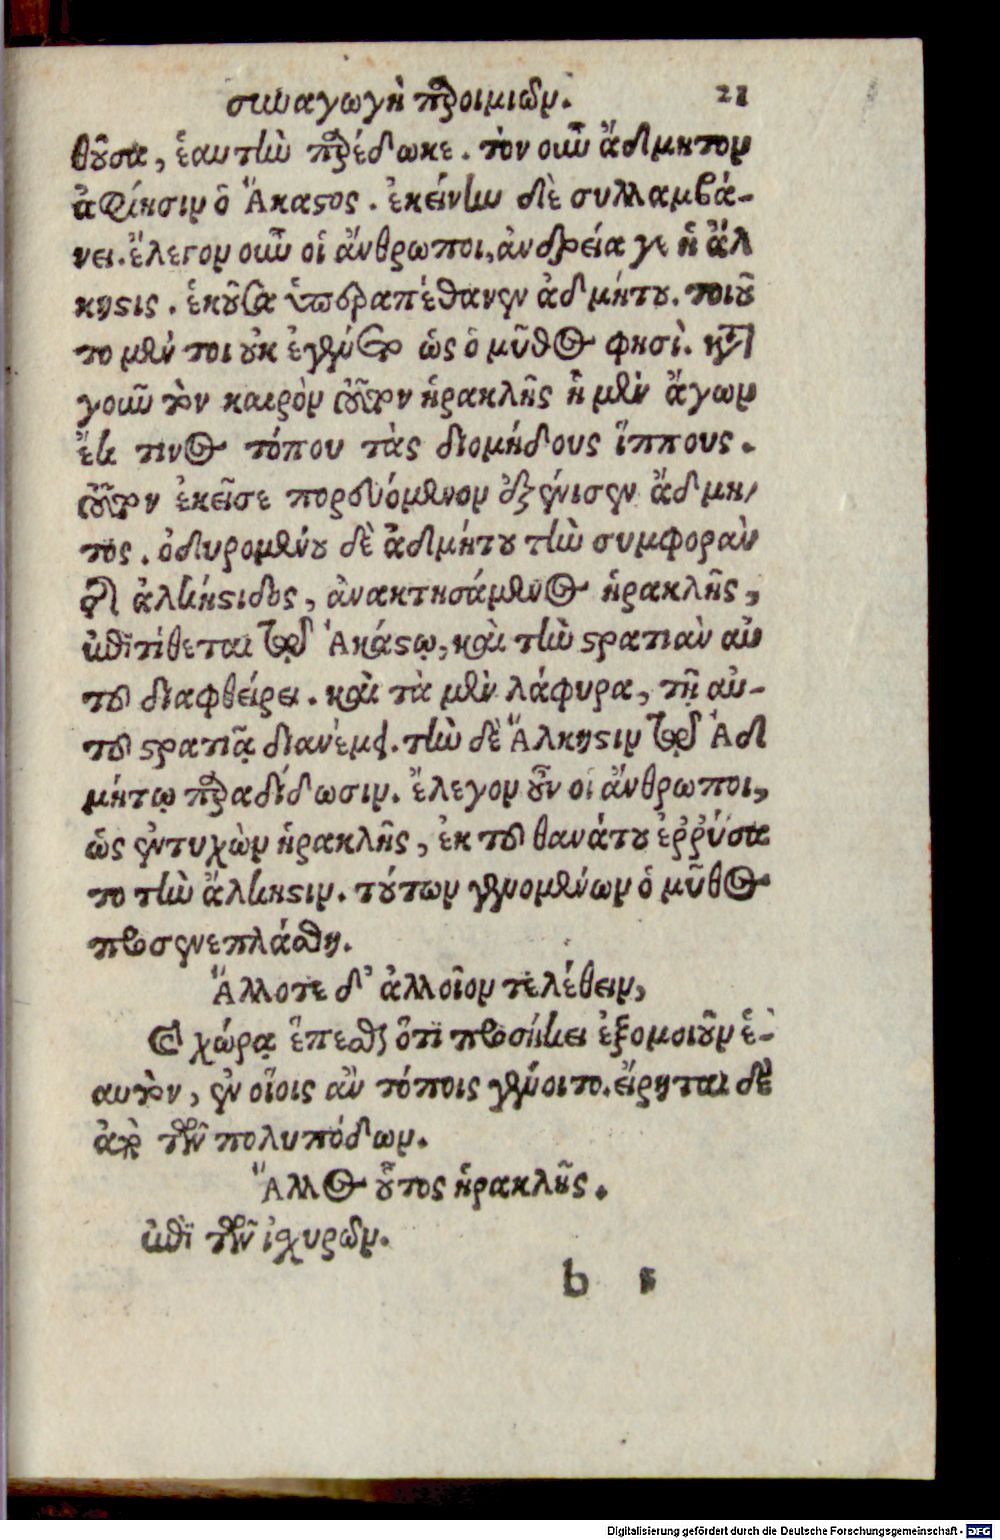 συναγωγὴ παροιμιῶν. 21
θοῦσα, ἑαυτὴν παρέδωκε. τὸν οὖν ἄδμητον
ἀφίησιν ὁ Ἄκαστος. ἐκείνην δὲ συλλαμβά-
νει. ἔλεγον οὖν οἱ ἄνθρωποι, ἀνδρεία γε ἡ ἄλ
κηστις. ἑκοῦσα ὑπεραπέθανεν ἀδμήτου. τοιοῦ
το μέν τοι οὐκ ἐγένετο ὡς ὁ μῦθος φησί. κατ'
γοῦν τὸν καιρὸν τοῦτον ἡρακλῆς ἦ μὲν ἄγων
ἔκ τινος τόπου τὰς διομήδους ἵππους.
τοῦτον ἐκεῖσε πορευόμενον ἐξένισεν ἄδμη-
τος. ὀδυρομένου δὲ ἀδμήτου τὴν συμφορὰν
τῆς ἀλκήστιδος, ἀνακτησάμενος ἡρακλῆς,
ἐπιτίθεται τῷ Ἀκάστῳ, καὶ τὴν στρατιὰν αὐ
τοῦ διαφθείρει. καὶ τὰ μὲν λάφυρα, τῇ αὐ-
τοῦ στρατιᾷ διανέμει. τὴν δὲ Ἄλκηστιν τῷ Ἀδ
μήτῳ παραδίδωσιν. ἔλεγον οὖν οἱ ἄνθρωποι,
ὡς ἐντυχὼν ἡρακλῆς, ἐκ τοῦ θανάτου ἐῤῥύσα
το τὴν ἄλκηστιν. τούτων γενομένων ὁ μῦθος
προσανεπλάσθη.
Ἄλλοτε δ' ἀλλοῖον τελέθειν,
καὶ χώρᾳ ἕπεσθαι ὅτι προσήκει ἐξομοιοῦν ἑ-
αυτὸν, ἐν οἵοις ἂν τόποις γένοιτο. εἴρηται δὲ
ἀπὸ τῶν πολυπόδων.
Ἄλλος οὗτος ἡρακλῆς.
ἐπὶ τῶν ἰσχυρῶν.
b 5
Digitalisierung gefördert durch die Deutsche Forschungsgemeinschaft - DFG